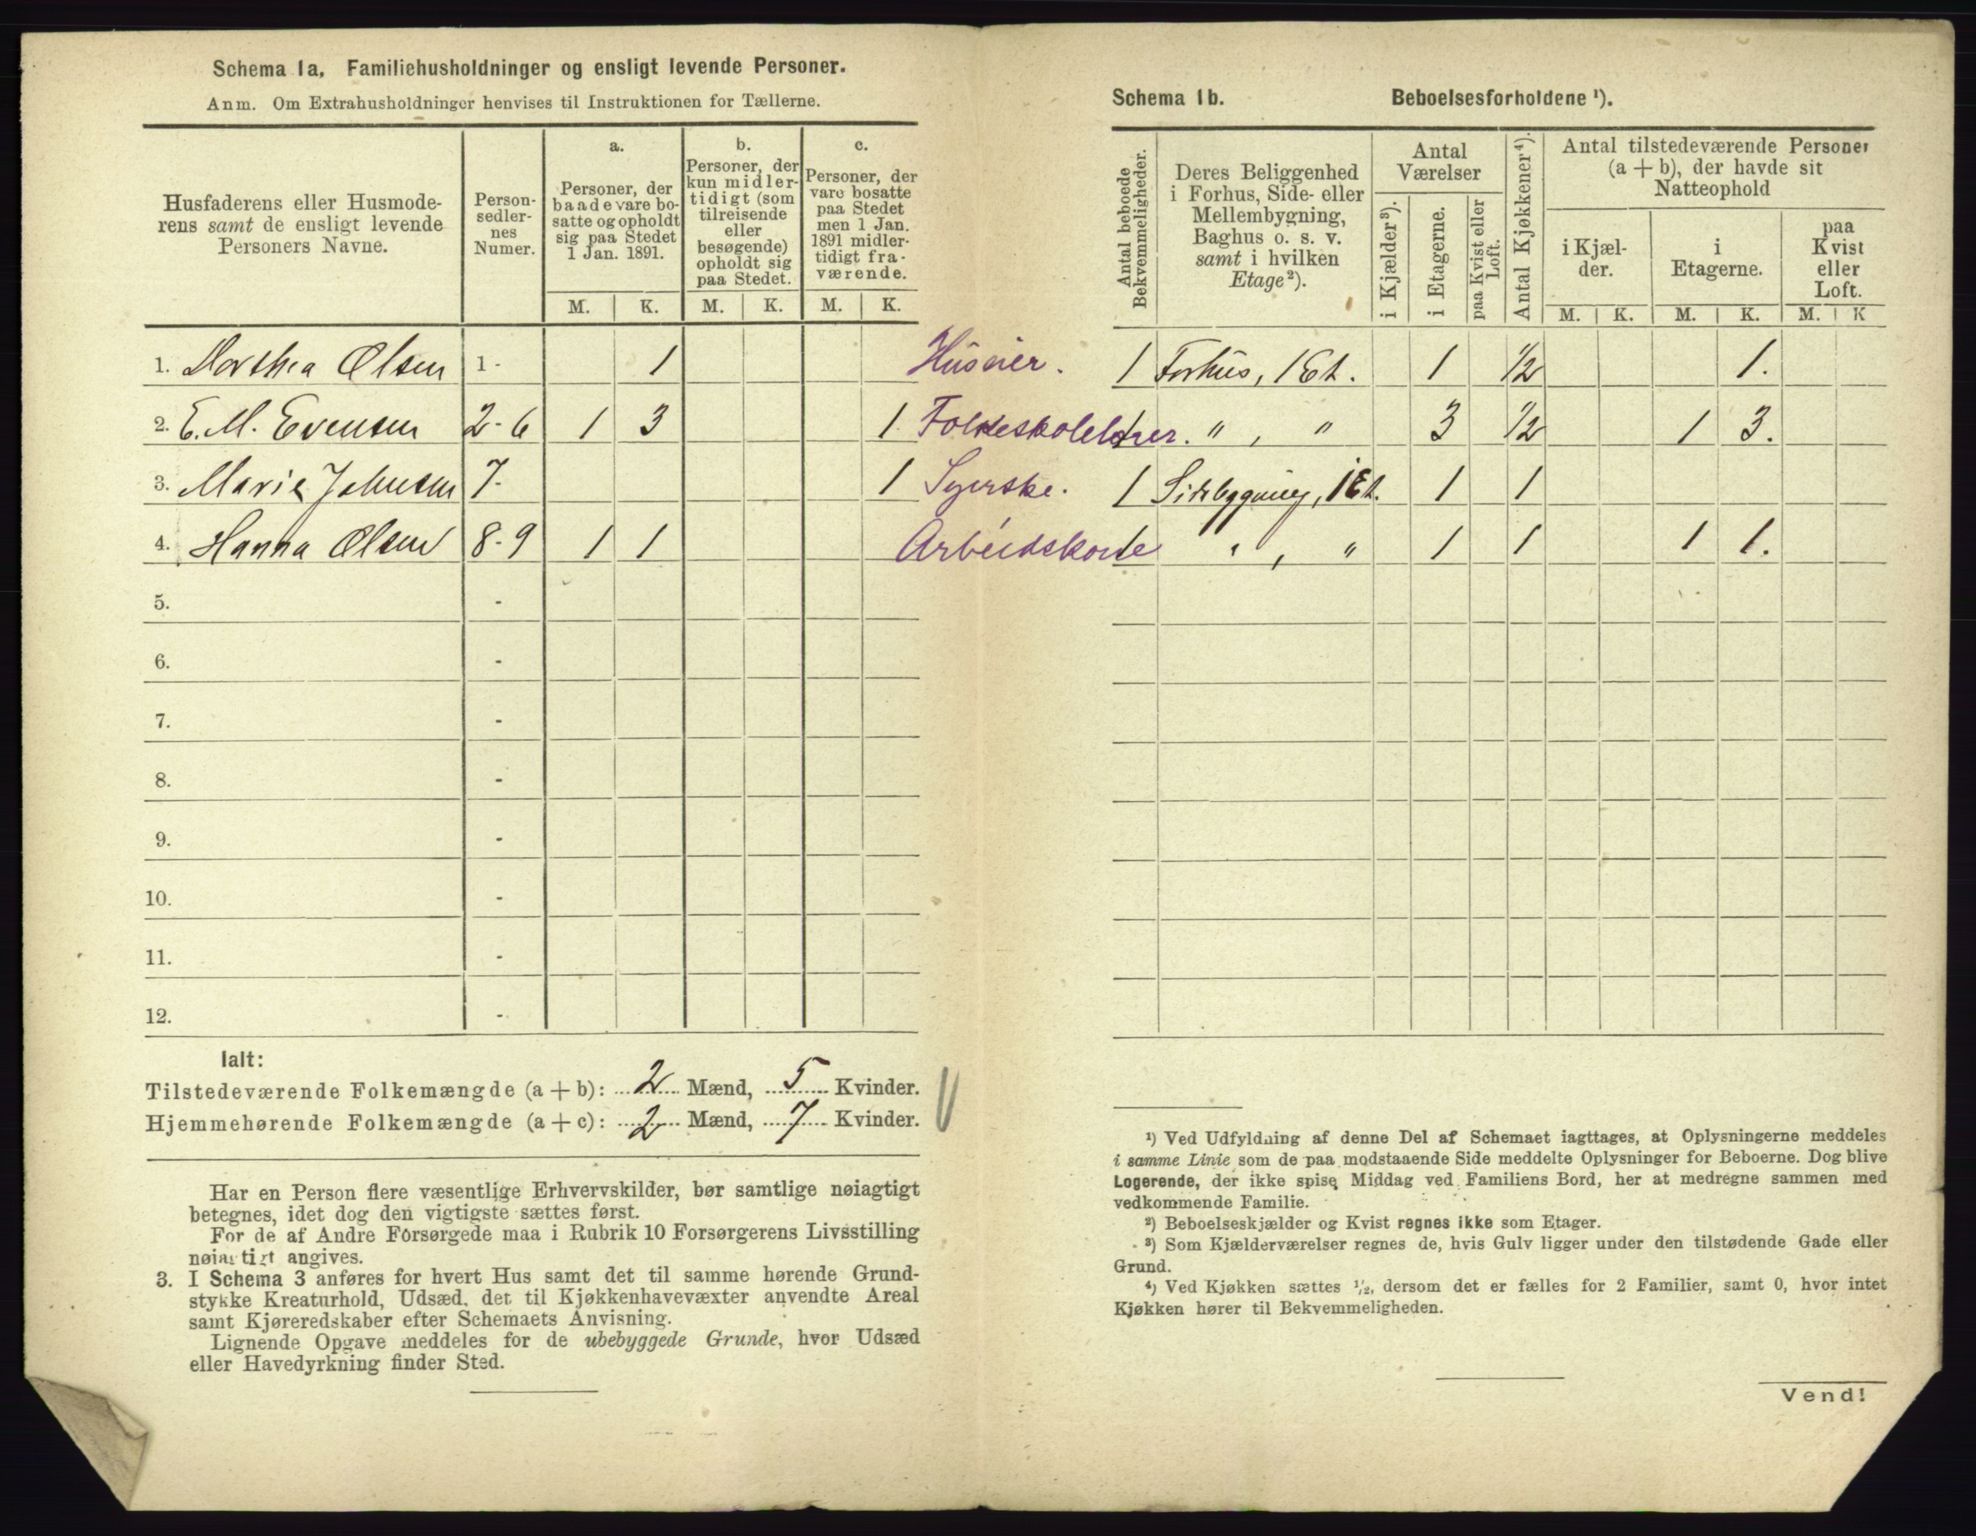 Schema 1a. Familiehusholdninger og ensligt levende Personer.
Anm. Om Extrahusholdninger henvises til Instruktionen for Tællerne.
Husfaderens eller Husmoderens samt de ensligt levende Personers Navne.
Personsedlernes Numer.
a.
Personer, der baade vare bosatte og opholdt sig paa Stedet 1 Jan. 1891.
b.
Personer, der kun midlertidigt (som tilreisende eller besøgende) opholdt sig paa Stedet.
c.
Personer, der vare bosatte paa Stedet men 1 Jan. 1891 midlertidigt fraværende.
M. K. M. K. M. K.
1. Dorthea Olsen 1- 1 Huseier.
2. E. M. Evensen 2-6 1 3 1
3. Marie Johnsen 7- 1 Syerske.
4. Hanna Olsen 8-9 1 1 Arbeidskone
5. -
6. -
7. -
8. -
9. -
10. -
11. -
12. -
Ialt:
Tilstedeværende Folkemængde (a + b): 2 Mænd, 5 Kvinder.
Hjemmehørende Folkemængde (a + c): 2 Mænd, 7 Kvinder.
Har en Person flere væsentlige Erhvervskilder, bør samtlige nøiagtigt
betegnes, idet dog den vigtigste sættes først.
For de af Andre Forsørgede maa i Rubrik 10 Forsørgerens Livsstilling
nøiagtigt angives.
3. I Schema 3 anføres for hvert Hus samt det til samme hørende Grund-
stykke Kreaturhold, Udsæd, det til Kjøkkenhavevæxter anvendte Areal
samt Kjøreredskaber efter Schemaets Anvisning.
Lignende Opgave meddeles for de ubebyggede Grunde, hvor Udsæd
eller Havedyrkning finder Sted.
Schema 1b. Beboelsesforholdene ¹).
Antal beboede Bekvemmeligheder.
Deres Beliggenhed i Forhus, Side- eller Mellembygning, Baghus o. s. v. samt i hvilken Etage²).
Antal Værelser
i Kjælder³).
i Etagerne.
paa Kvist eller Loft.
Antal Kjøkkener⁴).
Antal tilstedeværende Personer (a + b), der havde sit Natteophold
i Kjælder.
i Etagerne.
paa Kvist eller Loft.
M. K. M. K. M. K
1 Forhus, 1 Et. 1 1/2 1.
1 " , " 3 1/2 1 3.
1 Sidebygning, 1 Et. 1 1
1 " , " 1 1 1 1.
¹) Ved Udfyldning af denne Del af Schemaet iagttages, at Oplysningerne meddeles
i samme Linie som de paa modstaaende Side meddelte Oplysninger for Beboerne. Dog blive
Logerende, der ikke spise Middag ved Familiens Bord, her at medregne sammen med
vedkommende Familie.
²) Beboelseskjælder og Kvist regnes ikke som Etager.
³) Som Kjælderværelser regnes de, hvis Gulv ligger under den tilstødende Gade eller
Grund.
⁴) Ved Kjøkken sættes ½, dersom det er fælles for 2 Familier, samt 0, hvor intet
Kjøkken hører til Bekvemmeligheden.
Vend!